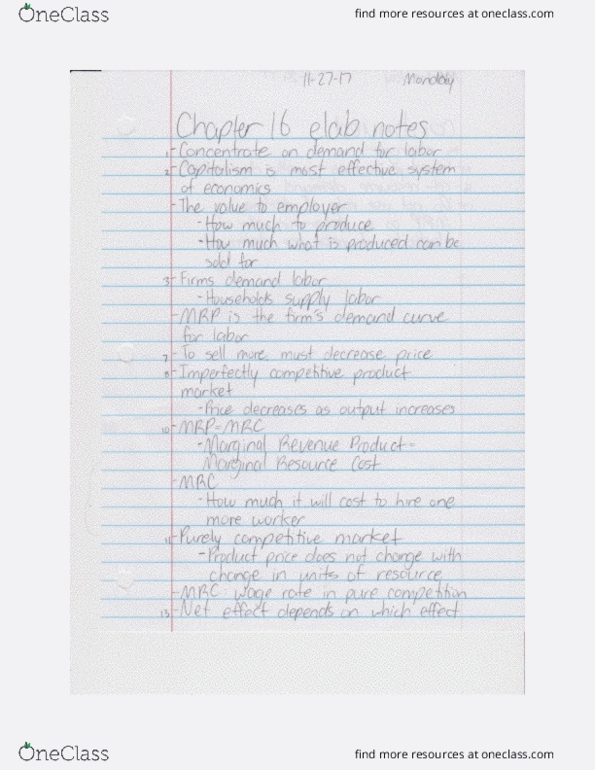 OneClass
find more resources at oneclass.com
11-27-17 Monday
Chapter 16 elab notes
1-Concentrate on demand for labor
2-Capitalism is most effective system
of economics
-The value to employer
-How much to produce
-How much what is produced can be
sold for
3-Firms demand labor
-Households supply labor
-MRP is the firm's demand curve
for labor
7-To sell more, must decrease price
8-Imperfectly competitive product
market
-Price decreases as output increases
10-MRP=MRC
-Marginal Revenue Product=
Marginal Resource Cost
-MRC
-How much it will cost to hire one
more worker
11-Purely competitive market
-Product price does not change with
change in units of resource
-MRC: wage rate in pure competition
13-Net effect depends on which effect
OneClass
find more resources at oneclass.com